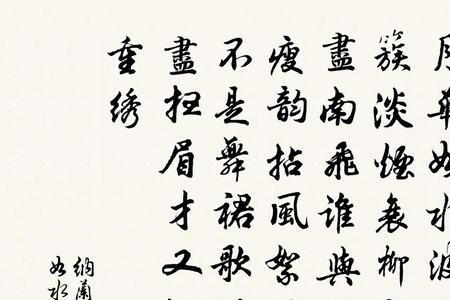 月華如水波
簇淡煙衰柳
盡南飛誰與
瘦韵拈風絮
不是舞裙歌
盡扫眉才又
重绣
納蘭
如水